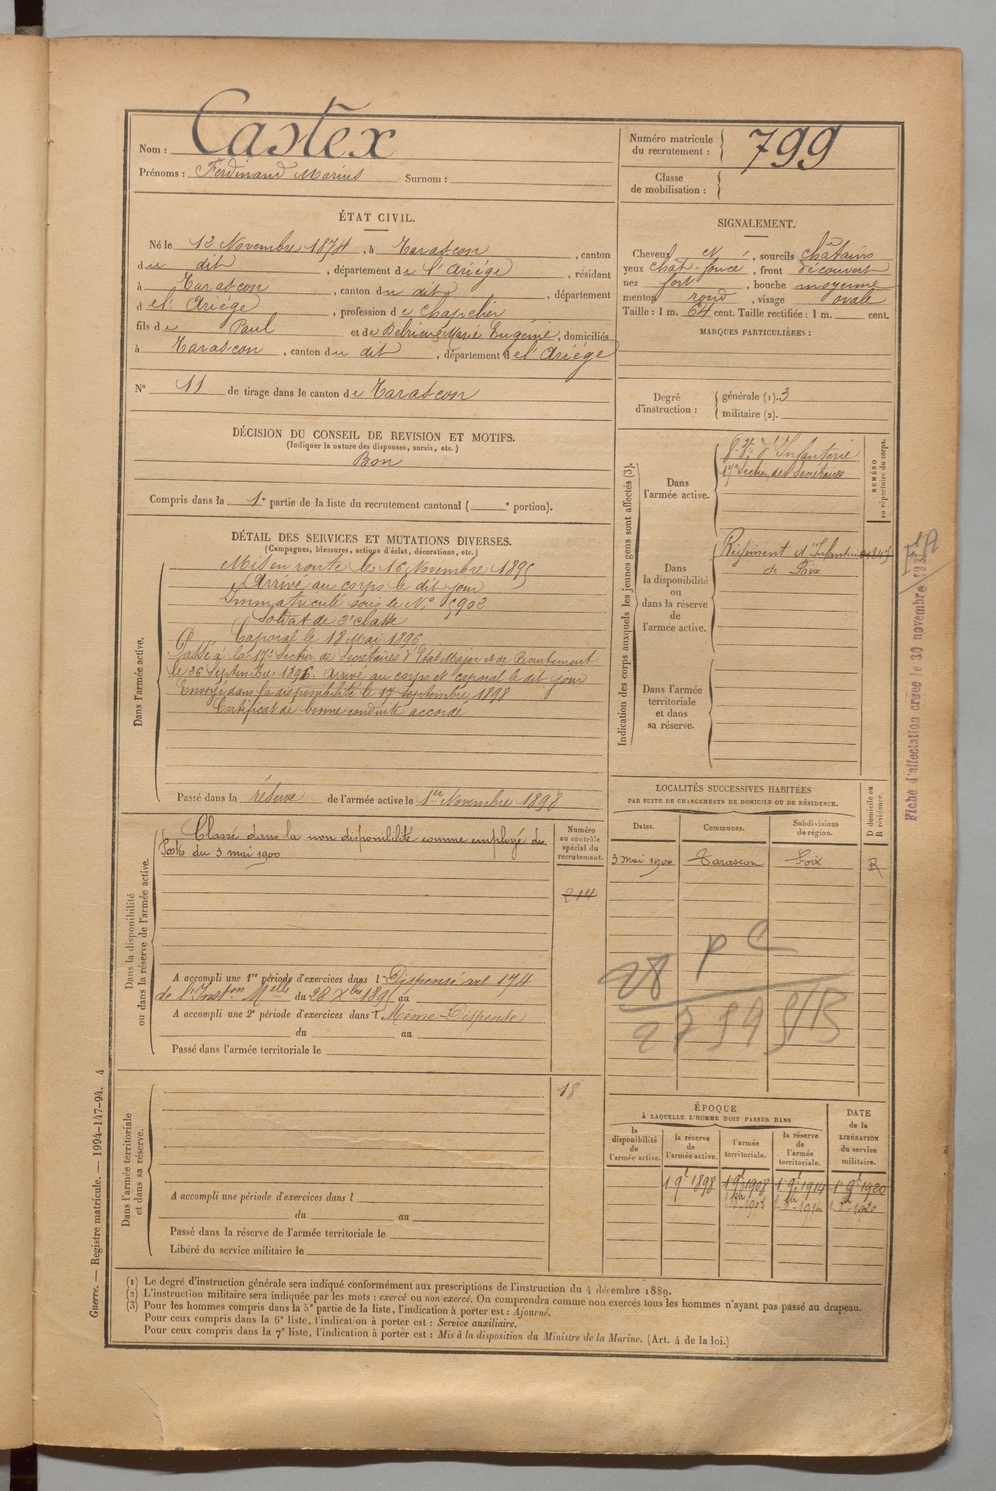 Nom : Castex
Prénoms : Ferdinand Marius Surnom :
Numéro matricule du recrutement : 799
Classe de mobilisation :
ÉTAT CIVIL.
Né le 12 Novembre 1874, à Tarascon, canton
du dit, département de l'Ariège, résidant
à Tarascon, canton du dit, département
de l'Ariège, profession de Chapelier
fils de Paul et de Delrieu Marie Eugénie, domiciliés
à Tarascon, canton du dit, département de l'Ariège
N° 11 de tirage dans le canton de Tarascon
SIGNALEMENT.
Cheveux et, sourcils châtains
yeux chât-foncé, front découvert
nez fort, bouche moyenne
menton rond, visage ovale
Taille : 1 m. 64 cent. Taille rectifiée : 1 m. cent.
MARQUES PARTICULIÈRES :
Degré d'instruction : générale (1). 3
militaire (2).
DÉCISION DU CONSEIL DE REVISION ET MOTIFS.
(Indiquer la nature des dispenses, sursis, etc.)
Bon
Compris dans la 1e partie de la liste du recrutement cantonal ( e portion).
DÉTAIL DES SERVICES ET MUTATIONS DIVERSES.
(Campagnes, blessures, actions d'éclat, décorations, etc.)
Dans l'armée active.
Mis en route le 16 Novembre 1895
Arrivé au corps le dit jour
Immatriculé sous le N° 5902
Soldat de 2e classe
Caporal le 18 Mai 1896
Passé à la 17e Section de Secrétaires d'Etat Major et de Recrutement
le 26 Septembre 1896. Arrivé au corps et caporal le dit jour
Envoyé dans la disponibilité le 17 Septembre 1898
Certificat de bonne conduite accordé
Passé dans la réserve de l'armée active le 1er Novembre 1898
Indication des corps auxquels les jeunes gens sont affectés (3).
NUMÉRO au répertoire du corps.
Dans l'armée active.
d'Infanterie
17e Section des Secrétaires
Dans la disponibilité ou dans la réserve de l'armée active.
Régiment d'Infanterie
de Foix
Dans l'armée territoriale et dans sa réserve.
Fiche d'affectation créée le 30 novembre
Dans la disponibilité ou dans la réserve de l'armée active.
Classé dans la non disponibilité comme employé des
Postes du 3 mai 1900
Numéro au contrôle spécial du recrutement.
214
A accompli une 1re période d'exercices dans l Dispensé art 194
de l'Inston Melle du 28 Xbre 1895 au
A accompli une 2e période d'exercices dans l Même Dispense
du au
Passé dans l'armée territoriale le
LOCALITÉS SUCCESSIVES HABITÉES
PAR SUITE DE CHANGEMENTS DE DOMICILE OU DE RÉSIDENCE.
Dates. Communes. Subdivisions de région. D domicile ou R résidence.
3 mai 1900 Tarascon Foix R
Dans l'armée territoriale et dans sa réserve.
18
A accompli une période d'exercices dans l
du au
Passé dans la réserve de l'armée territoriale le
Libéré du service militaire le
ÉPOQUE
À LAQUELLE L'HOMME DOIT PASSER DANS
la disponibilité de l'armée active. la réserve de l'armée active. l'armée territoriale. la réserve de l'armée territoriale.
DATE de la LIBÉRATION du service militaire.
1 9e 1898 1 9e 1908 1 9e 1914 1 9e 1920
(1) Le degré d'instruction générale sera indiqué conformément aux prescriptions de l'instruction du 4 décembre 1889.
(2) L'instruction militaire sera indiquée par les mots : exercé ou non exercé. On comprendra comme non exercés tous les hommes n'ayant pas passé au drapeau.
(3) Pour les hommes compris dans la 5e partie de la liste, l'indication à porter est : Ajourné.
Pour ceux compris dans la 6e liste, l'indication à porter est : Service auxiliaire.
Pour ceux compris dans la 7e liste, l'indication à porter est : Mis à la disposition du Ministre de la Marine. (Art. 4 de la loi.)
Guerre. — Registre matricule. — 1994-147-94. 4